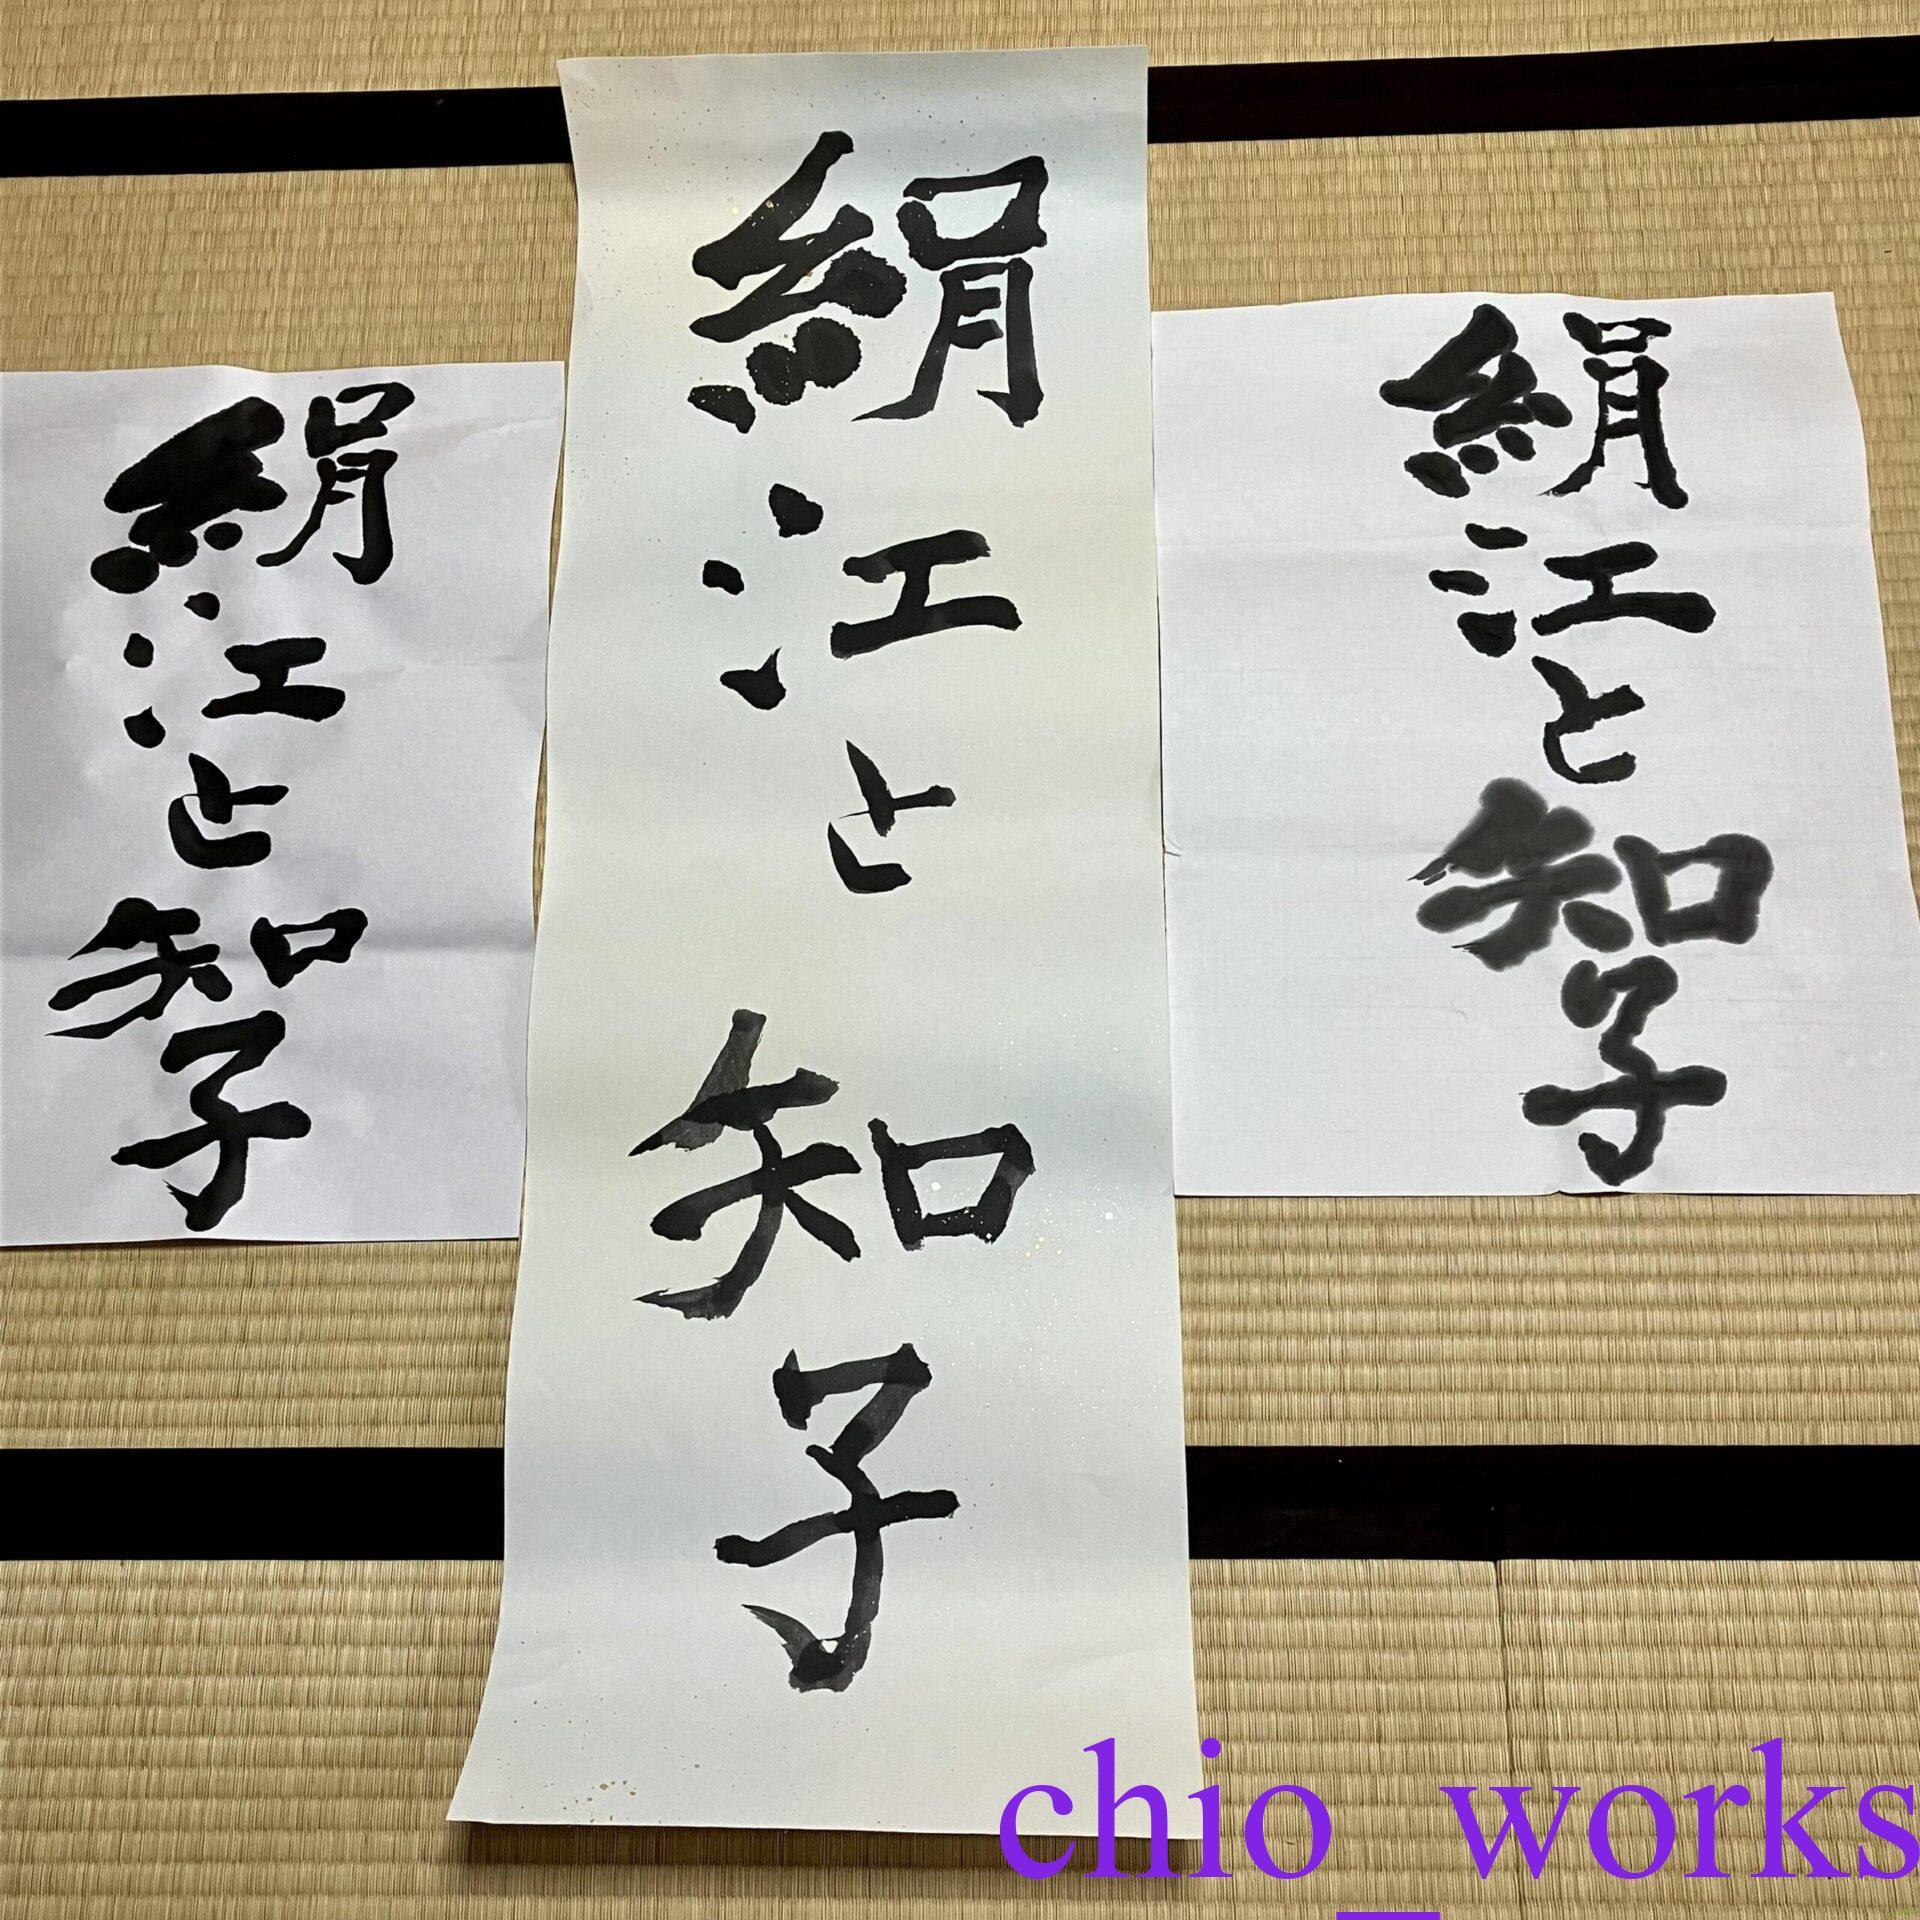 絹江と知子
絹江と知子
絹江と知子
chio_works